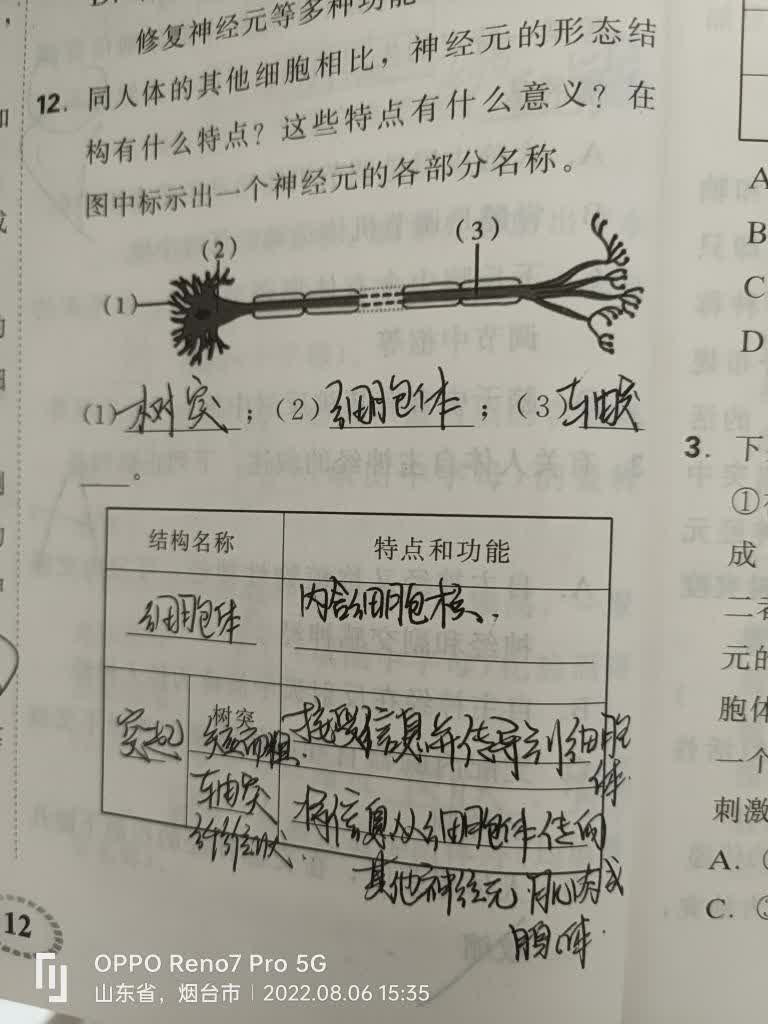 修复神经元等多种功能
12. 同人体的其他细胞相比，神经元的形态结
构有什么特点？这些特点有什么意义？在
图中标示出一个神经元的各部分名称。
(2)
(3)
(1)
(1) 树突 ；(2) 细胞体 ；(3) 轴突
。
结构名称 特点和功能
细胞体 内含细胞核，
突起 树突 短而粗. 接受信息并传导到细胞
体.
轴突 纤维状. 将信息从细胞体传向
其他神经元 肌肉或
腺体.
12
3. 下
①
成
二
元的
胞体
一个
刺激
A.
C.
A
B
C
D
OPPO Reno7 Pro 5G
山东省，烟台市 | 2022.08.06 15:35